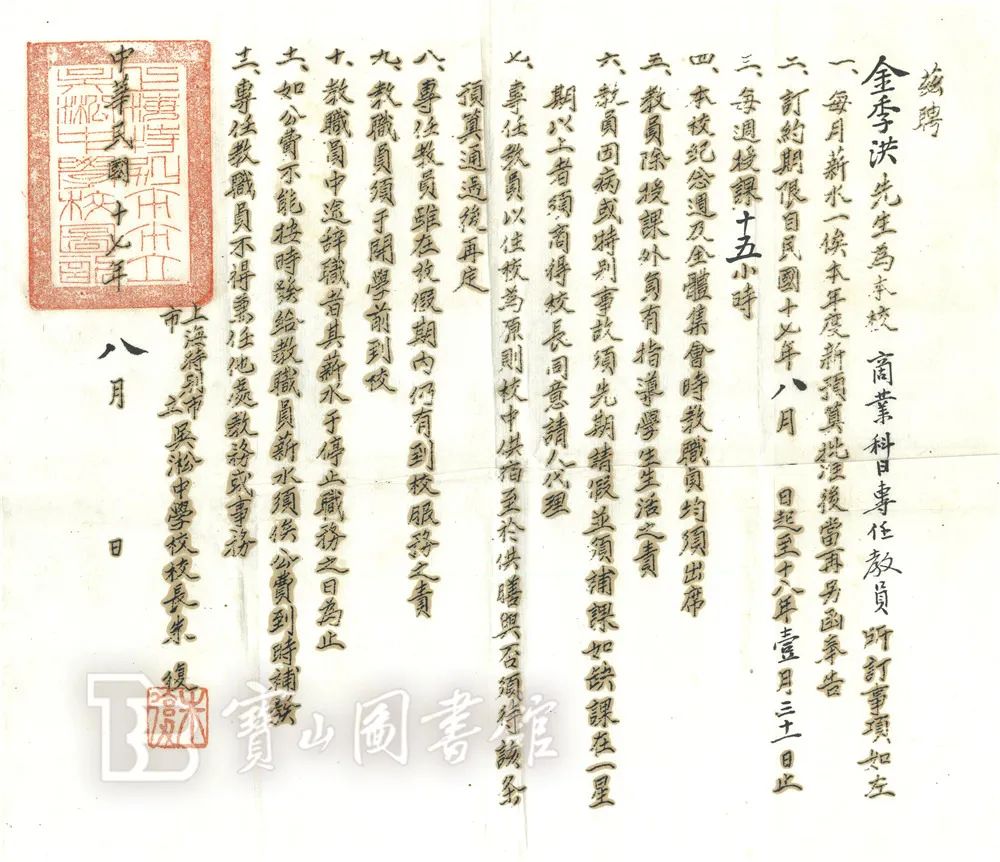 茲聘
金季洪先生為本校商業科目專任教員所訂事項如左
一、每月薪水一俟本年度新預算批准後當再另函奉告
二、訂約期限自民國十七年八月 日起至十八年壹月三十一日止
三、每週授課十五小時
四、本校紀念週及全體集會時教職員均須出席
五、教員除授課外負有指導學生生活之責
六、教員因病或特別事故須先期請假並須補課如缺課在一星
期以上者須商得校長同意請人代理
七、專任教員以住校為原則校中供宿至於供膳與否須待該條
預算通過後再定
八、專任教員雖在放假期內仍有到校服務之責
九、教職員須于開學前到校
十、教職員中途辭職者其薪水于停止職務之日為止
十一、如公費不能按時發給教職員薪水須俟公費到時補發
十二、專任教職員不得兼任他處教務或事務
上海特別市市立吳淞中學校校長朱復
中華民國十七年八月 日
上海特別市市立
吳淞中學校圖記
寶山圖書館